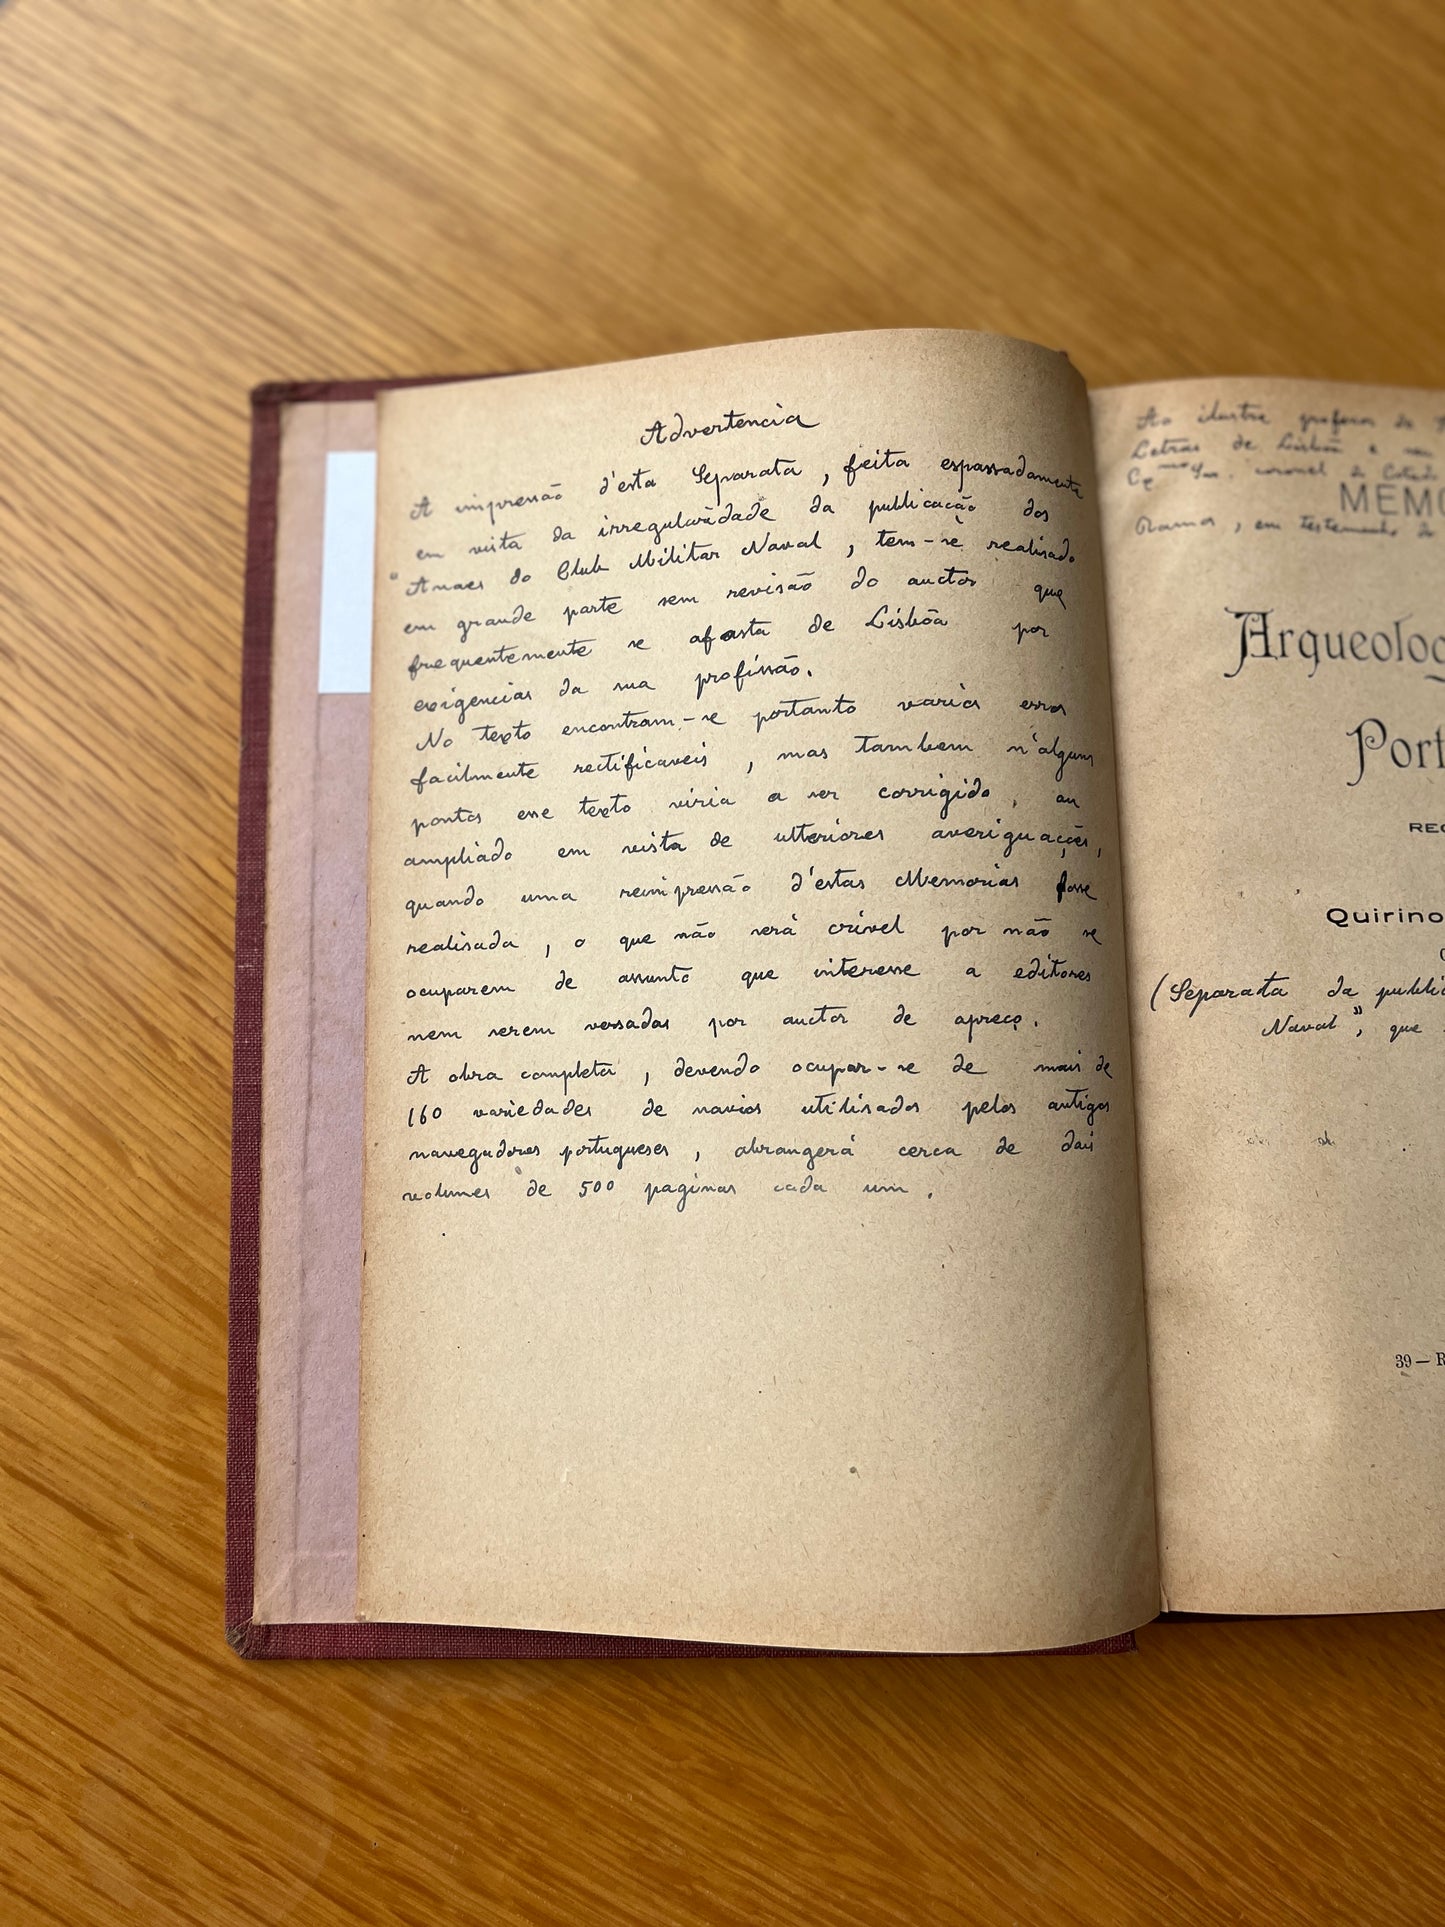 Advertencia
A impressão d'esta Separata, feita espassadamente
em vista da irregularidade da publicação dos
"Anaes do Club Militar Naval, tem-se realisado
em grande parte sem revisão do auctor que
frequentemente se afasta de Lisbôa por
exigencias da sua profissão.
No texto encontram-se portanto varios erros
facilmente rectificaveis, mas tambem n'alguns
pontos esse texto viria a ser corrigido, ou
ampliado em vista de ulteriores averiguações,
quando uma reimpressão d'estas Memorias fosse
realisada, o que não será crivel por não se
ocuparem de assunto que interesse a editores
nem serem versadas por auctor de apreço.
A obra completa, devendo ocupar-se de mais de
160 variedades de navios utilisados pelos antigos
navegadores portugueses, abrangerá cerca de dois
volumes de 500 paginas cada um.
Ao ilustre professor da
Letras de Lisbôa e
coronel
MEMO
Ramos, em testemunho de
Arqueolog
Port
REC
Quirino
(Separata da public
Naval", que
39 — R